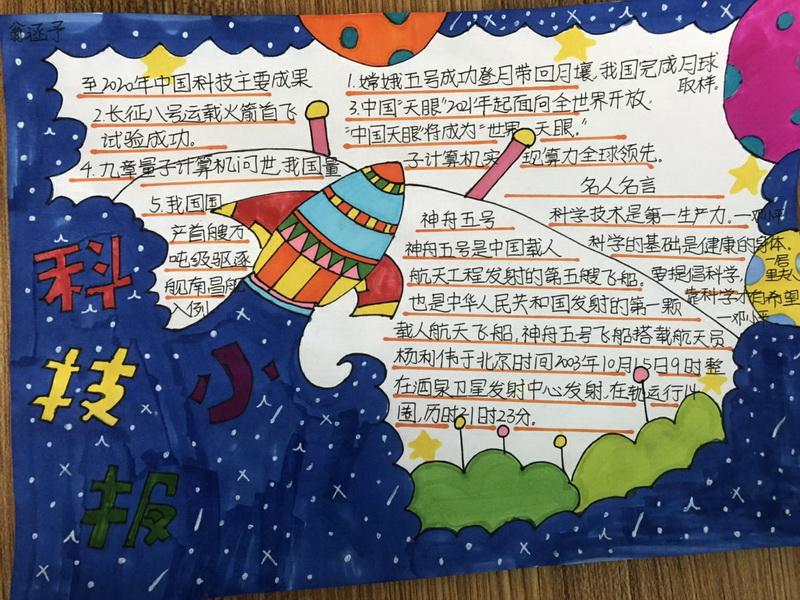 翁涵予
科技小报
至2020年中国科技主要成果
1.嫦娥五号成功登月带回月壤,我国完成月球
取样。
2.长征八号运载火箭首飞
试验成功。
3.中国“天眼”2021年起面向全世界开放.
“中国天眼”将成为“世界天眼。”
4.九章量子计算机问世,我国量
子计算机实现算力全球领先。
5.我国国
产首艘万
吨级驱逐
舰南昌舰
入例
神舟五号
神舟五号是中国载人
航天工程发射的第五艘飞船。
也是中华人民共和国发射的第一颗
载人航天飞船,神舟五号飞船搭载航天员
杨利伟于北京时间2003年10月15日9时整
在酒泉卫星发射中心发射.在轨运行14
圈,历时21时23分。
名人名言
科学技术是第一生产力。—邓小平
科学的基础是健康的身体。
—居里夫人
要提倡科学,
靠科学才有希望
—邓小平